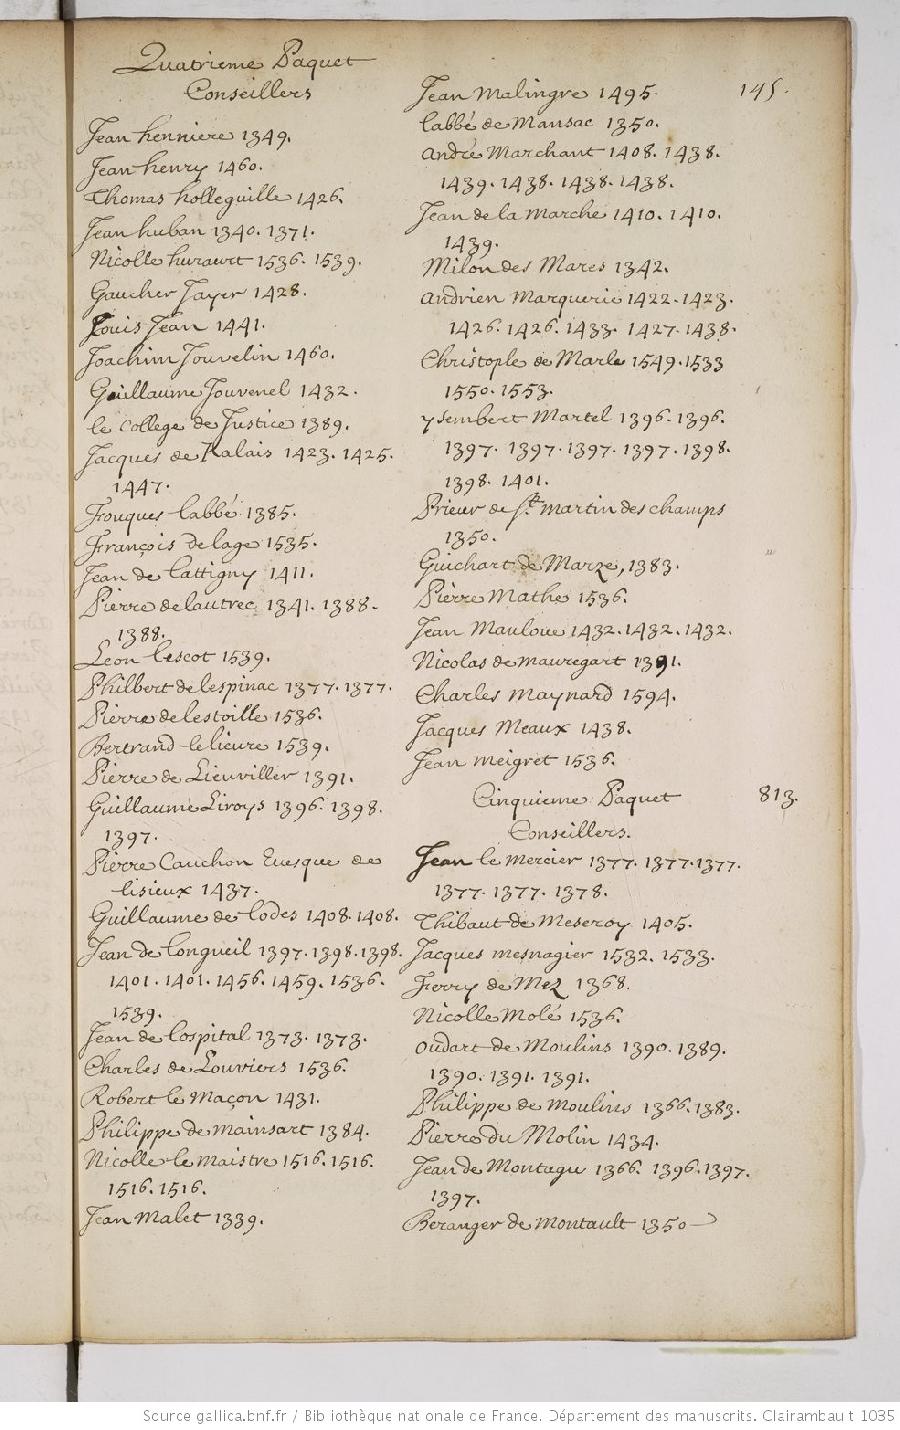 Quatrieme Paquet
Conseillers
Jean henniere 1349.
Jean henry 1460.
Thomas holleguille 1426.
Jean huban 1340. 1371.
Nicolle hurault 1536. 1539.
Gaucher Jayer 1428.
Louis Jean 1441.
Joachim Jouvelin 1460.
Guillaume Jouvenel 1432.
le College de Justice 1389.
Jacques de Kalais 1423. 1425.
1447.
Frouques labbé 1385.
François delage 1535.
Jean de lattigny 1411.
Pierre de lautrec 1341. 1388.
1388.
Leon lescot 1539.
Philbert de lespinac 1377. 1377.
Pierre de lestoille 1536.
Bertrand le lieure 1539.
Pierre de Lieuviller 1391.
Guillaume Liroys 1396. 1398.
1397.
Pierre Cauchon Euesque de
lisieux 1437.
Guillaume de lodes 1408. 1408.
Jean de longueil 1397. 1398. 1398.
1401. 1401. 1456. 1459. 1536.
1539.
Jean de lospital 1373. 1373.
Charles de Louviers 1536.
Robert le Maçon 1431.
Philippe de mainsart 1384.
Nicolle le maistre 1516. 1516.
1516. 1516.
Jean Malet 1339.
145.
Jean Malingre 1495.
labbé de Mansac 1350.
André Marchant 1408. 1438.
1439. 1438. 1438. 1438.
Jean de la marche 1410. 1410.
1439.
Milon des Mares 1342.
Andrien Marguerie 1422. 1423.
1426. 1426. 1433. 1427. 1438.
Christople de Marle 1549. 1533
1550. 1553.
ysembert Martel 1396. 1396.
1397. 1397. 1397. 1397. 1398.
1398. 1401.
Prieur de St. martin des champs
1350.
Guichart de Marze, 1383.
Pierre Mathe 1536.
Jean Mauloue 1432. 1432. 1432.
Nicolas de mauregart 1391.
Charles maynard 1594.
Jacques Meaux 1438.
Jean meigret 1536.
Cinquieme Paquet 813.
Conseillers.
Jean le mercier 1377. 1377. 1377.
1377. 1377. 1378.
Thibaut de Meseroy 1405.
Jacques mesnagier 1532. 1533.
Ferry de Mez 1368.
Nicolle Molé 1536.
oudart de Moulins 1390. 1389.
1390. 1391. 1391.
Philippe de moulins 1366. 1383.
Pierre du Molin 1434.
Jean de Montagu 1366. 1396. 1397.
1397.
Beranger de montault 1350
Source gallica.bnf.fr / Bibliothèque nationale de France. Département des manuscrits. Clairambault 1035